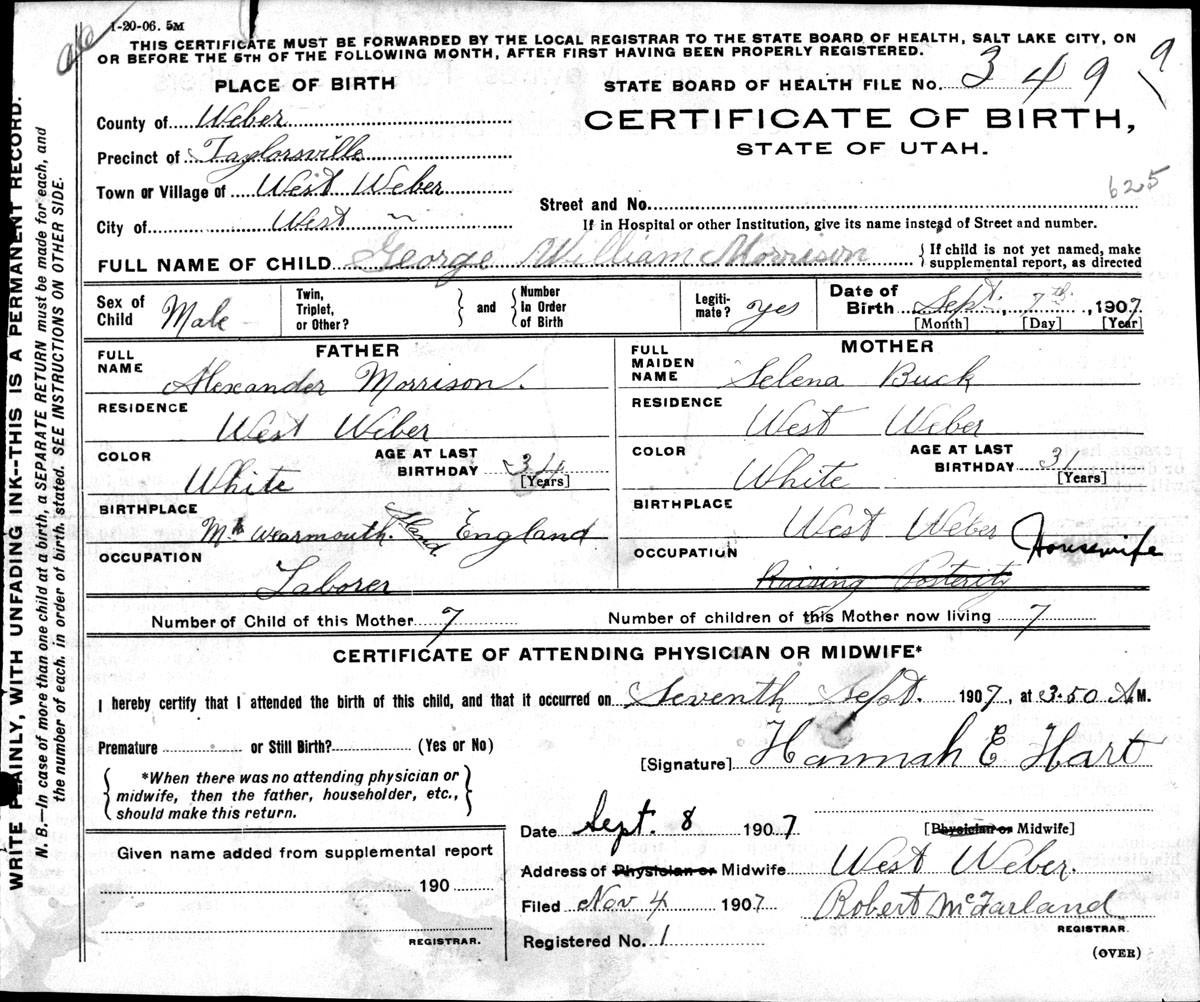 1-20-06. 5M
THIS CERTIFICATE MUST BE FORWARDED BY THE LOCAL REGISTRAR TO THE STATE BOARD OF HEALTH, SALT LAKE CITY, ON
OR BEFORE THE 5TH OF THE FOLLOWING MONTH, AFTER FIRST HAVING BEEN PROPERLY REGISTERED.
PLACE OF BIRTH
STATE BOARD OF HEALTH FILE No. 349 9
County of Weber
CERTIFICATE OF BIRTH,
STATE OF UTAH.
Precinct of Taylorsville
Town or Village of West Weber
625
Street and No.
City of West ~
If in Hospital or other Institution, give its name instead of Street and number.
FULL NAME OF CHILD George William Morrison
{If child is not yet named, make
supplemental report, as directed
Sex of Child Male
Twin, Triplet, or Other? } and { Number In Order of Birth
Legiti-mate? yes
Date of Birth Sept. 7th, 1907
[Month] [Day] [Year]
FATHER
FULL NAME Alexander Morrison.
RESIDENCE West Weber
COLOR White
AGE AT LAST BIRTHDAY 34 [Years]
BIRTHPLACE Mk Wearmouth. England
OCCUPATION Laborer
MOTHER
FULL MAIDEN NAME Selena Buck
RESIDENCE West Weber
COLOR White
AGE AT LAST BIRTHDAY 31 [Years]
BIRTHPLACE West Weber
OCCUPATION Raising Posterity Housewife
Number of Child of this Mother 7
Number of children of this Mother now living 7
CERTIFICATE OF ATTENDING PHYSICIAN OR MIDWIFE*
I hereby certify that I attended the birth of this child, and that it occurred on Seventh Sept. 1907, at 3.50 A M.
Premature or Still Birth? (Yes or No)
[Signature] Hannah E Hart
{ *When there was no attending physician or
midwife, then the father, householder, etc.,
should make this return. }
Date Sept. 8 1907
[Physician or Midwife]
Given name added from supplemental report
190
REGISTRAR.
Address of Physician or Midwife West Weber.
Filed Nov 4 1907 Robert McFarland
REGISTRAR.
Registered No. 1
(OVER)
WRITE PLAINLY, WITH UNFADING INK--THIS IS A PERMANENT RECORD.
N. B.—In case of more than one child at a birth, a SEPARATE RETURN must be made for each, and
the number of each, in order of birth, stated. SEE INSTRUCTIONS ON OTHER SIDE.